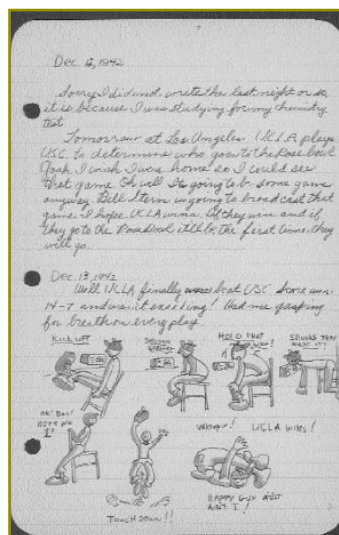 Dec. 12, 1942
Sorry I did not write the last night or so,
it is because I was studying for my chemistry
test.
Tomorrow at Los Angeles, UCLA plays
USC. to determine who goes to the Rose bowl
Gosh, I wish I was home so I could see
that game. Oh well It's going to be some game
anyway. Bill Stern is going to broadcast that
game. I hope UCLA wins. If they win and if
they go to the Rosebowl it'll be the first time they
will go.
Dec. 13, 1942
Well UCLA finally beat USC. Score was
14-7 and was it exciting! Had me gasping
for breath on every play
KICK OFF
SECOND
HOLD THAT
LINE!
SHUCKS THEY
MADE IT!
OH! BOY!
1º
Whoopie!
UCLA WINS!
TOUCH DOWN!!
HAPPY GUY AIN'T
AIN'T I!